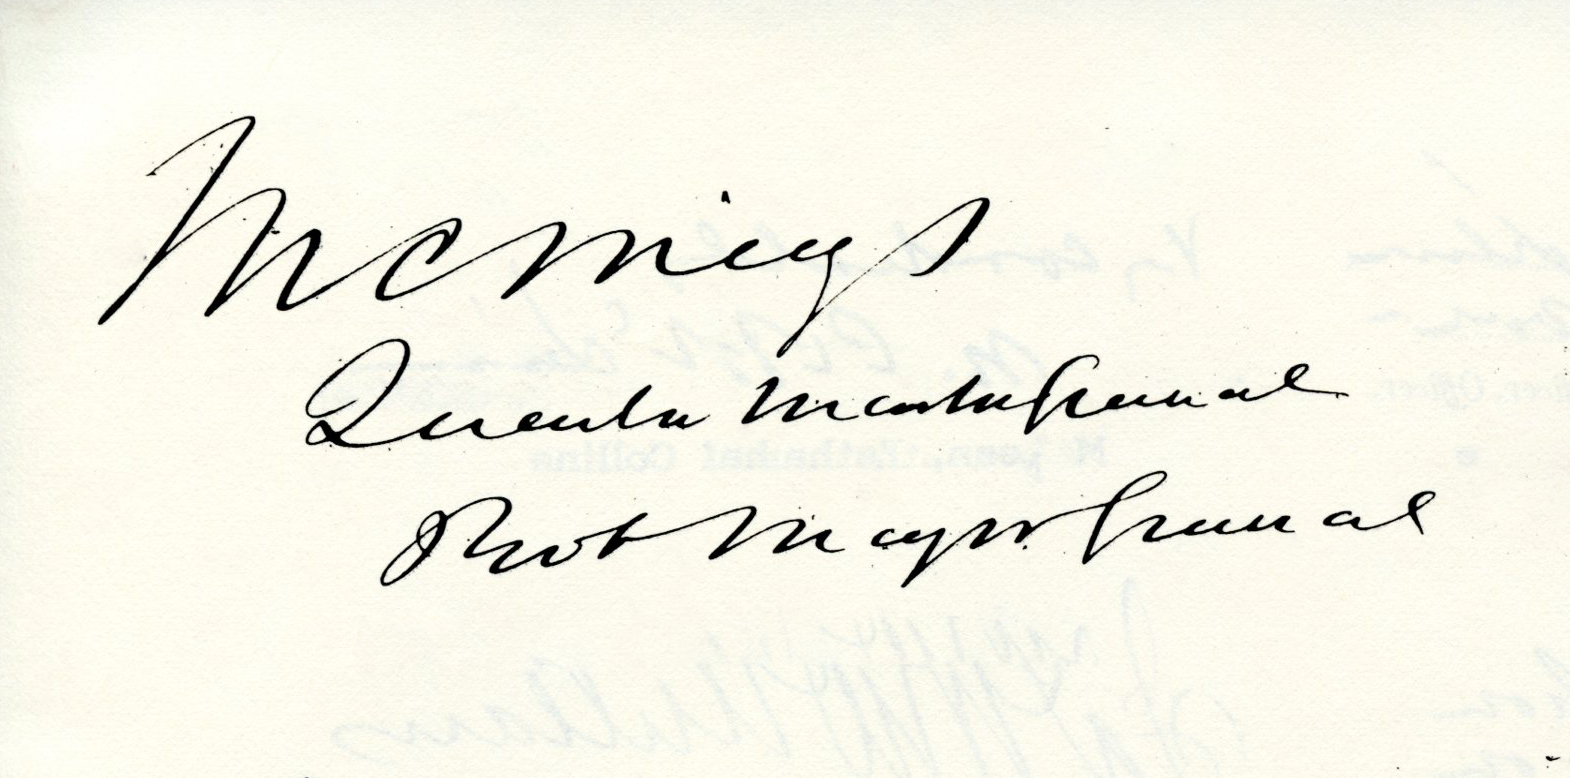 M C Meigs
Quarter Master General
Bvt Major General